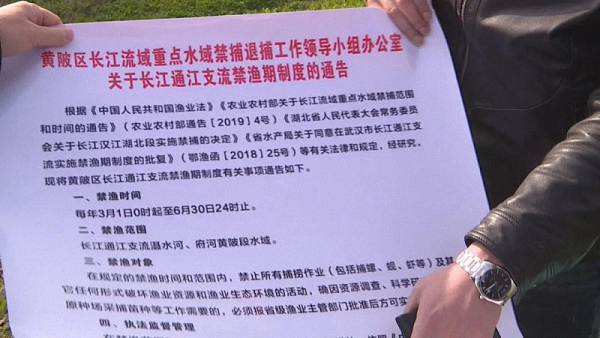 黄陂区长江流域重点水域禁捕退捕工作领导小组办公室
关于长江通江支流禁渔期制度的通告
根据《中国人民共和国渔业法》《农业农村部关于长江流域重点水域禁捕范围
和时间的通告》（农业农村部通告［2019］4号）《湖北省人民代表大会常务委员
会关于长江汉江湖北段实施禁捕的决定》《省水产局关于同意在武汉市长江通江支
流实施禁渔期制度的批复》（鄂渔函［2018］25号）等有关法律和规定，经研究，
现将黄陂区长江通江支流禁渔期制度有关事项通告如下。
一、禁渔时间
每年3月1日0时起至6月30日24时止。
二、禁渔范围
长江通江支流滠水河、府河黄陂段水域。
三、禁渔对象
在规定的禁渔时间和范围内，禁止所有捕捞作业（包括捕螺、蚬、虾等）及其
它任何形式破坏渔业资源和渔业生态环境的活动，确因资源调查、科学研
原种场采捕苗种等工作需要的，必须报省级渔业主管部门批准后方可实
四、执法监督管理